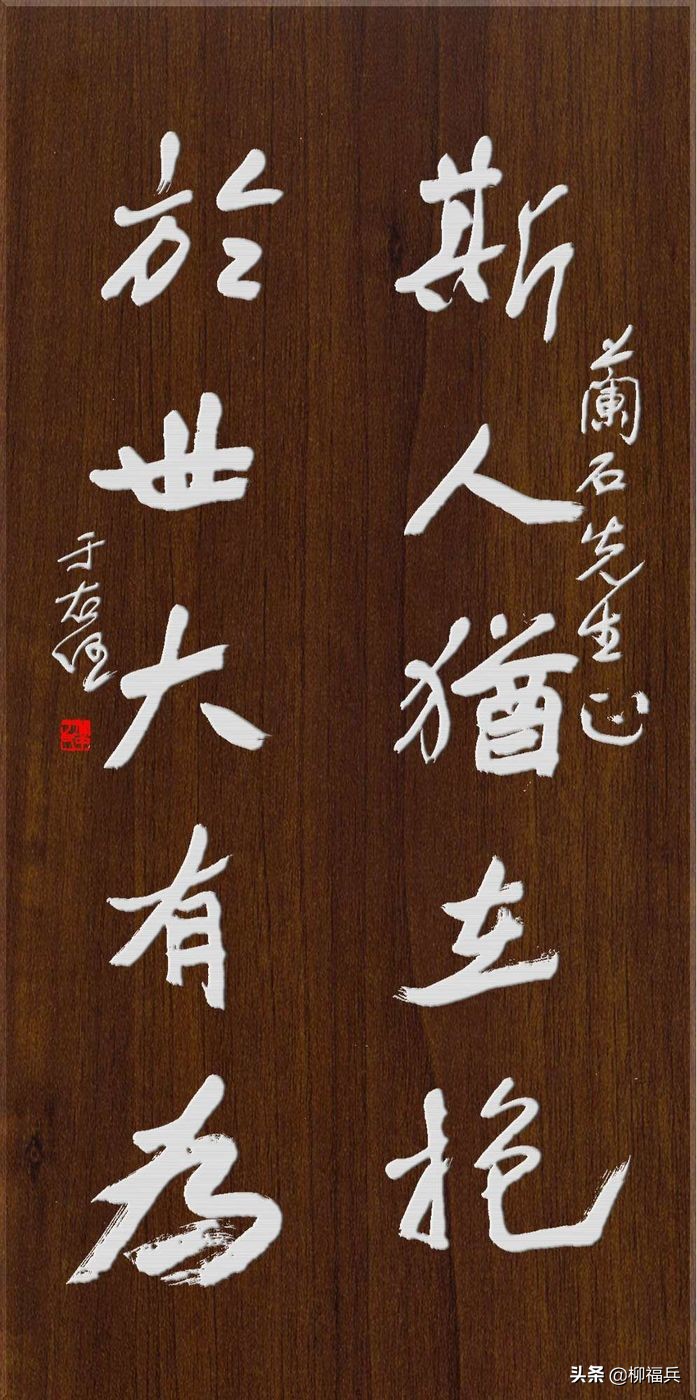 蘭石先生正
斯人猶在抱
於世大有為
于右任
头条 @柳福兵